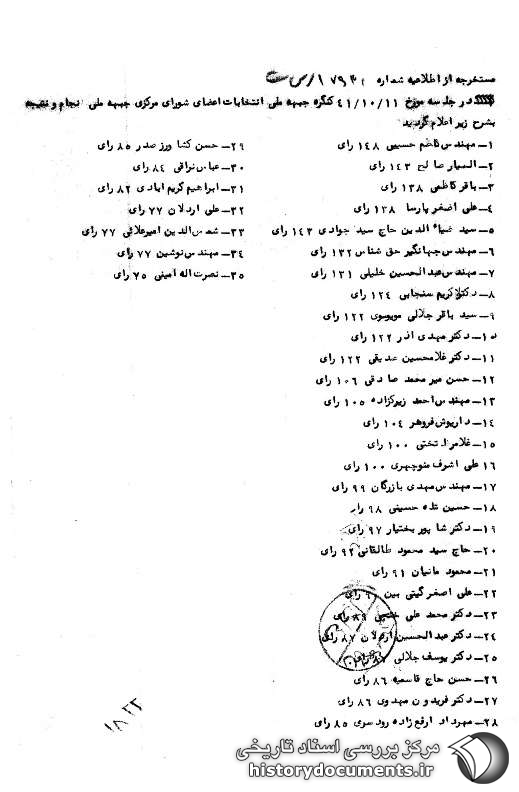 مستخرجه از اطلاعیه شماره
در جلسه مورخ ۴۱/۱۰/۱۱ کنگره جبهه ملی انتخابات اعضای شورای مرکزی جبهه ملی انجام و نتیجه
بشرح زیر اعلام گردید
۱ـ مهندس کاظم حسیبی ۱۴۸ رای
۲ـ الهیار صالح ۱۴۳ رای
۳ـ باقر کاظمی ۱۳۸ رای
۴ـ علی اصغر پارسا ۱۳۸ رای
۵ـ سید ضیاء الدین حاج سید جوادی ۱۴۳ رای
۶ـ مهندس جهانگیر حق شناس ۱۳۲ رای
۷ـ مهندس عبدالحسین خلیلی ۱۳۱ رای
۸ـ دکتر کریم سنجابی ۱۲۴ رای
۹ـ سید باقر جلالی موسوی ۱۲۲ رای
۱۰ـ دکتر مهدی آذر ۱۲۲ رای
۱۱ـ دکتر غلامحسین صدیقی ۱۲۲ رای
۱۲ـ حسن میر محمد صادقی ۱۰۶ رای
۱۳ـ مهندس احمد زیرکزاده ۱۰۵ رای
۱۴ـ داریوش فروهر ۱۰۴ رای
۱۵ـ غلامرضا تختی ۱۰۰ رای
۱۶ علی اشرف منوچهری ۱۰۰ رای
۱۷ـ مهندس مهدی بازرگان ۹۹ رای
۱۸ـ حسین شاه حسینی ۹۸ رای
۱۹ـ دکتر شاپور بختیار ۹۷ رای
۲۰ـ حاج سید محمود طالقانی ۹۲ رای
۲۱ـ محمود مانیان ۹۱ رای
۲۲ـ علی اصغر گیتی بین رای
۲۳ـ دکتر محمد علی ۸۹ رای
۲۴ـ دکتر عبدالحسین اردلان ۸۷ رای
۲۵ـ دکتر یوسف جلالی رای
۲۶ـ حسن حاج قاسمیه ۸۶ رای
۲۷ـ دکتر فریدون مهدوی ۸۶ رای
۲۸ـ مهرداد ارفع زاده رودسری ۸۵ رای
۲۹ـ حسن کشاورز صدر ۸۵ رای
۳۰ـ عباس نراقی ۸۴ رای
۳۱ـ ابراهیم کریم ابادی ۸۲ رای
۳۲ـ علی اردلان ۷۷ رای
۳۳ـ شمس الدین امیرعلائی ۷۷ رای
۳۴ـ مهندس نوشین ۷۷ رای
۳۵ـ نصرت اله امینی ۷۵ رای
مرکز بررسی اسناد تاریخی
historydocuments.ir